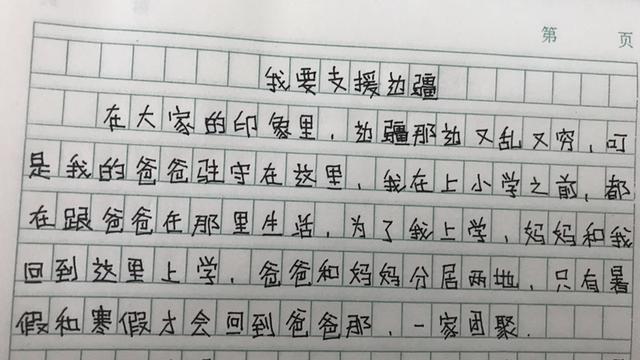 第 页
我要支援边疆
在大家的印象里，边疆那边又乱又穷，可
是我的爸爸驻守在这里，我在上小学之前，都
在跟爸爸在那里生活，为了我上学，妈妈和我
回到这里上学，爸爸和妈妈分居两地，只有暑
假和寒假才会回到爸爸那，一家团聚.